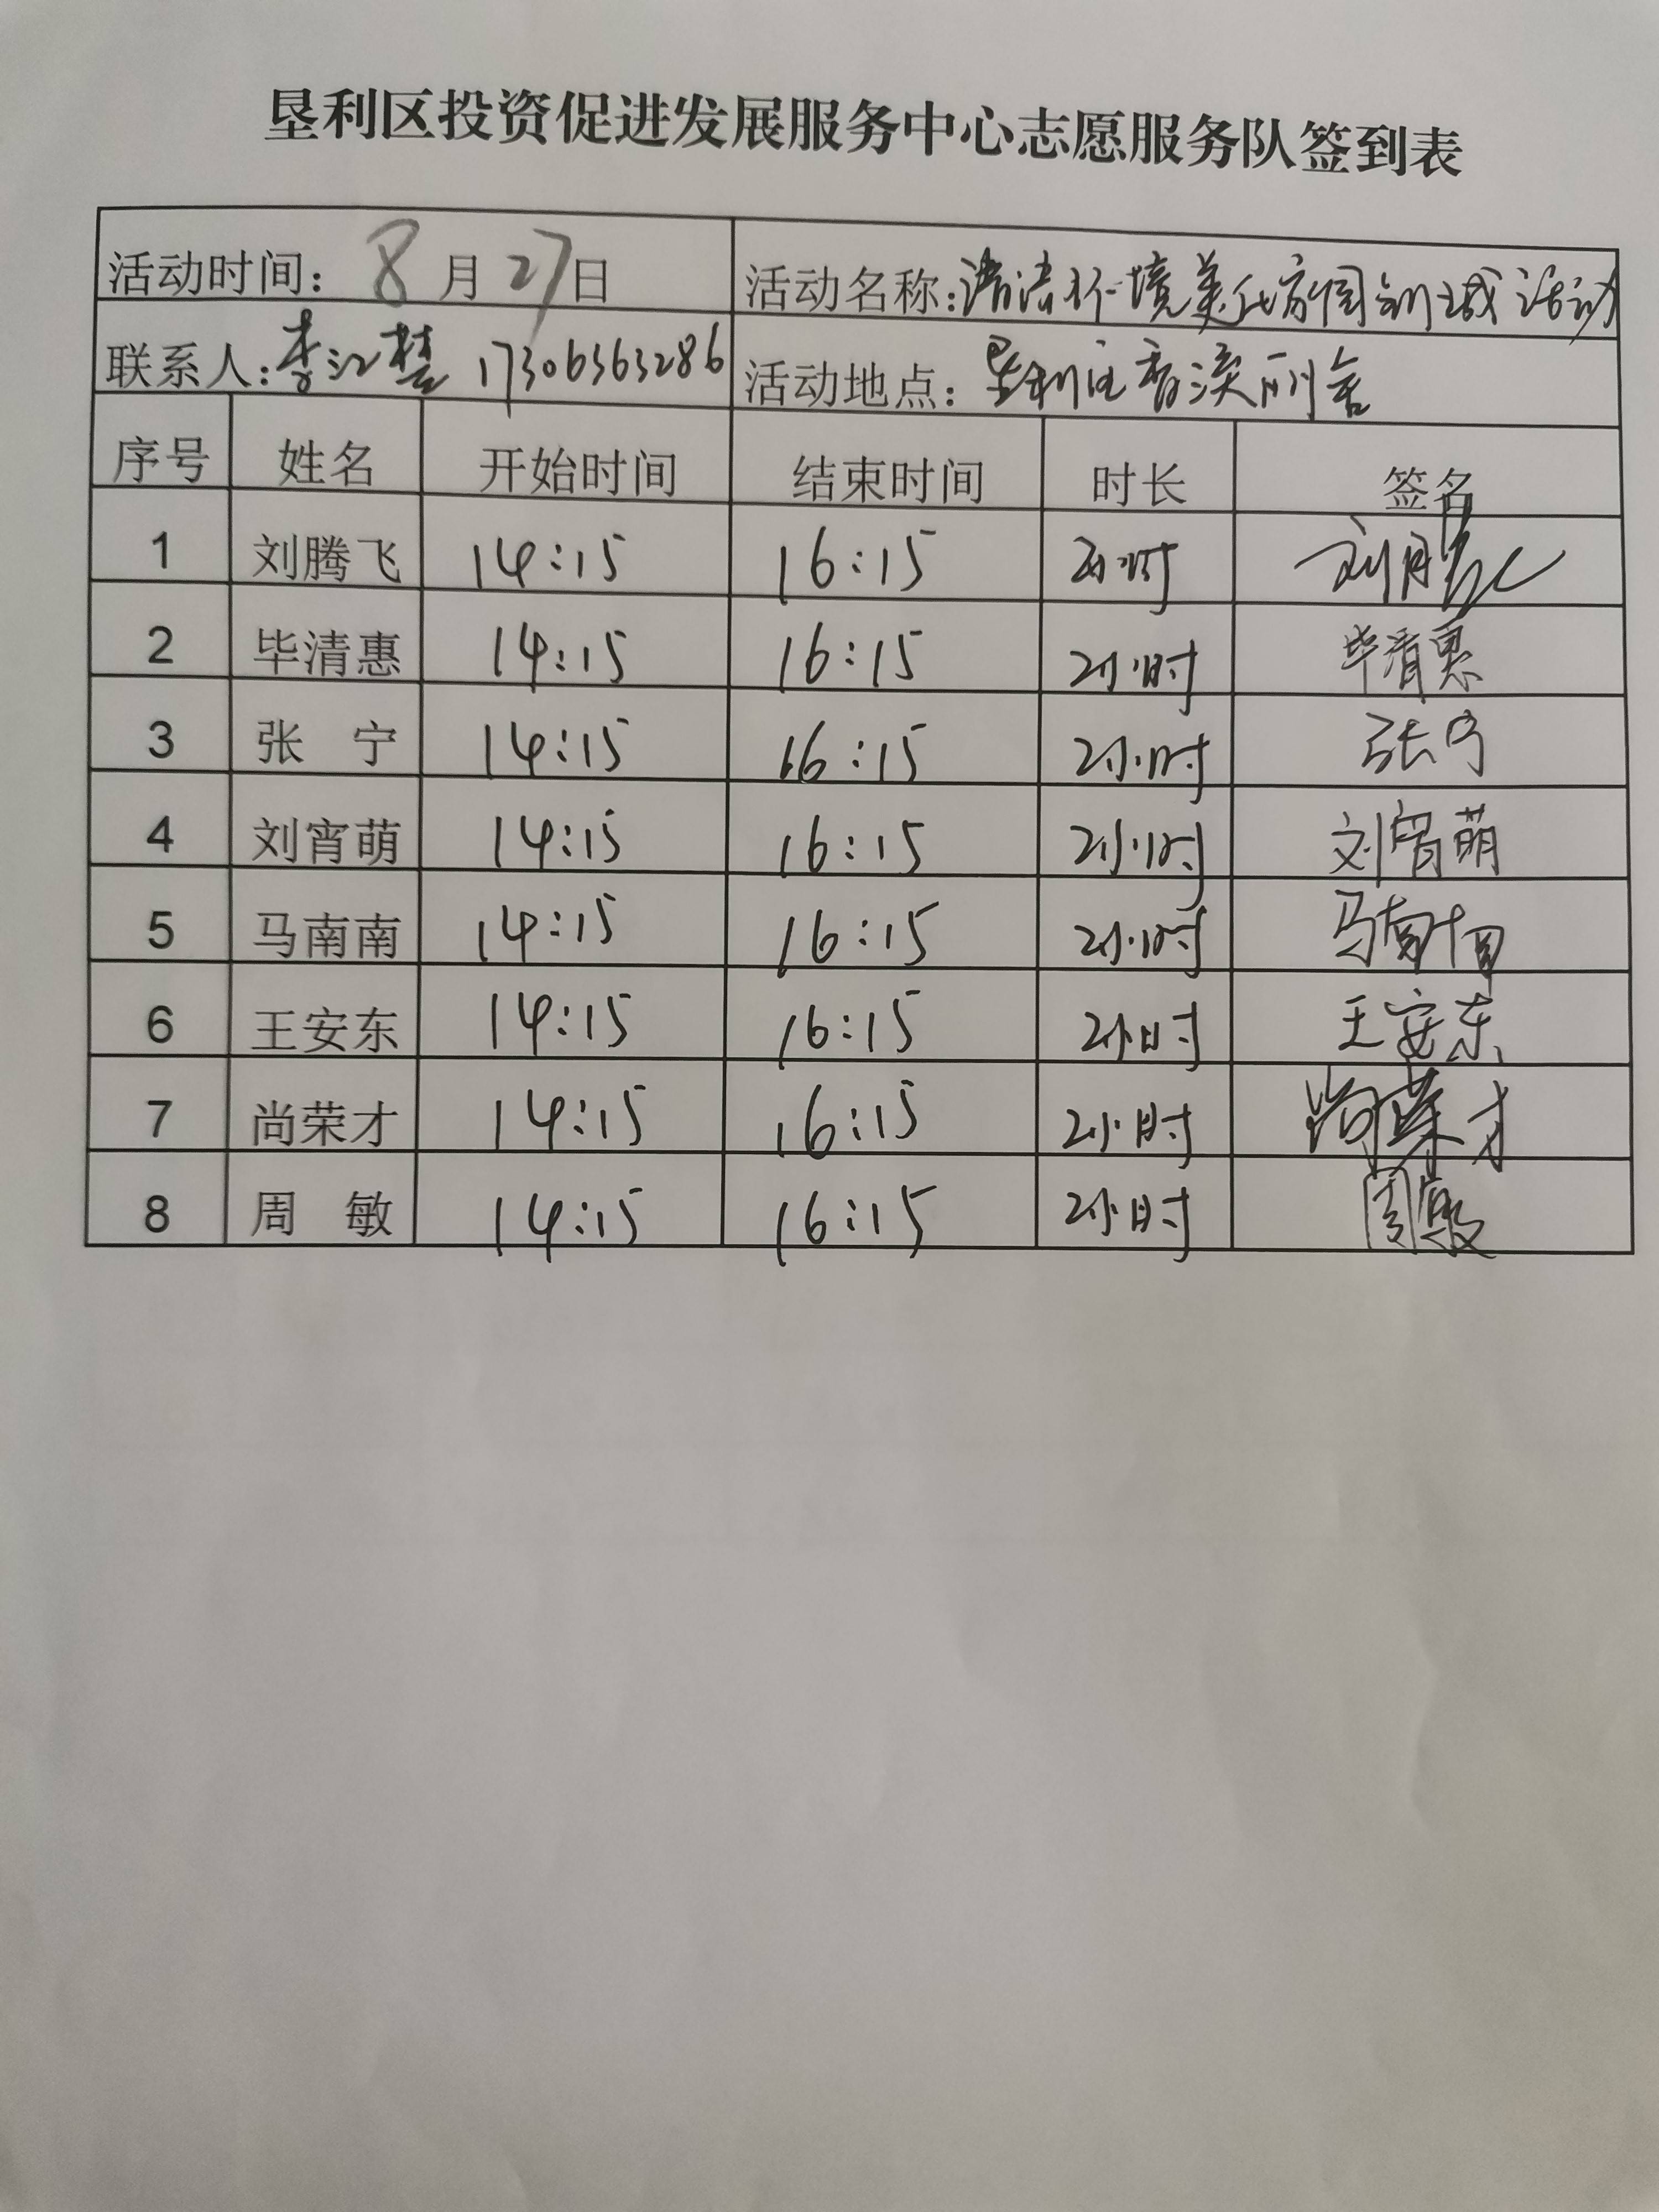 垦利区投资促进发展服务中心志愿服务队签到表
活动时间：8月27日 活动名称：清洁环境美化家园创城活动
联系人：李江楚 17306363286 活动地点：垦利区香溪丽舍
序号 姓名 开始时间 结束时间 时长 签名
1 刘腾飞 14:15 16:15 2小时 刘腾飞
2 毕清惠 14:15 16:15 2小时 毕清惠
3 张 宁 14:15 16:15 2小时 张宁
4 刘宵萌 14:15 16:15 2小时 刘宵萌
5 马南南 14:15 16:15 2小时 马南南
6 王安东 14:15 16:15 2小时 王安东
7 尚荣才 14:15 16:15 2小时 尚荣才
8 周 敏 14:15 16:15 2小时 周敏